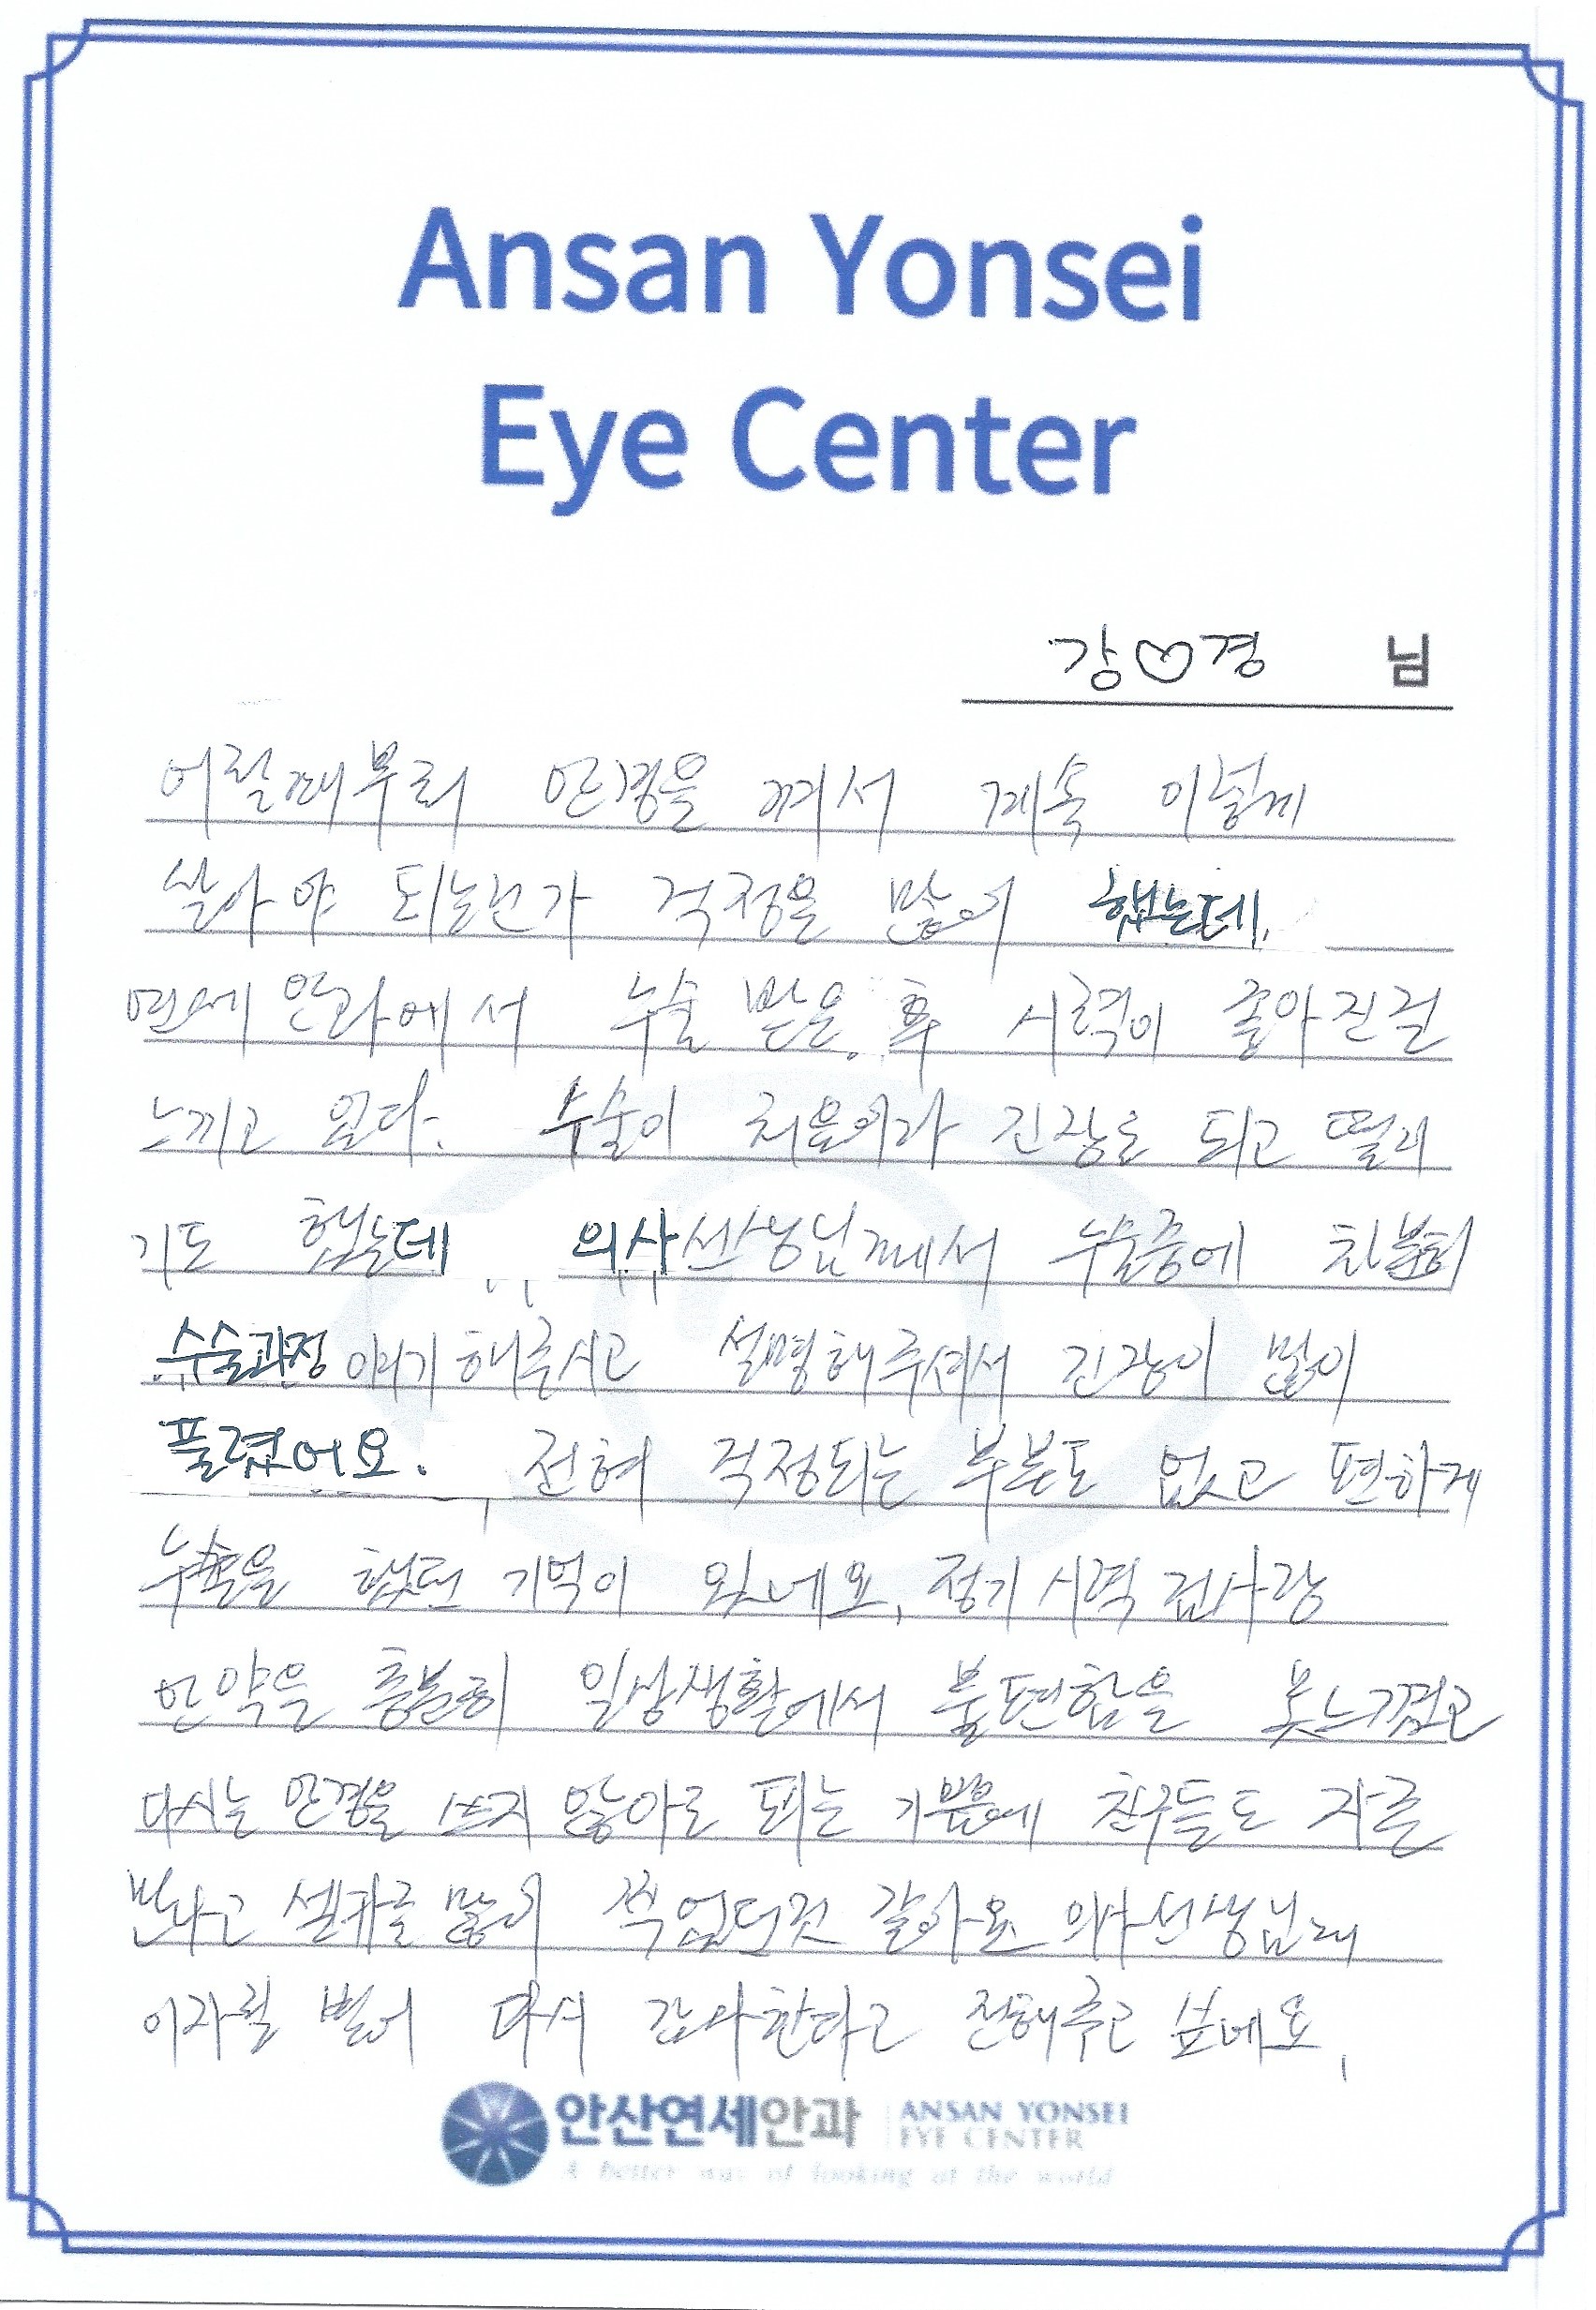 Ansan Yonsei
Eye Center
강♡경 님
어릴때부터 안경을 껴서 계속 이렇게
살아야 되는건가 걱정을 많이 했는데.
연세안과에서 수술 받은 후 시력이 좋아진걸
느끼고 있다. 수술이 처음이라 긴장도 되고 떨리
기도 했는데 의사선생님께서 수술중에 차분히
수술과정 얘기해주시고 설명해주셔서 긴장이 많이
풀렸어요. 전혀 걱정되는 부분도 없고 편하게
수술을 했던 기억이 있네요. 정기 시력 검사랑
안약을 충분히 일상생활에서 불편함을 못느꼈고
다시는 안경을 쓰지 않아도 되는 기쁨에 친구들도 자주
만나고 셀카를 많이 찍었던것 같아요 의사선생님께
이자릴 빌어 다시 감사한다고 전해주고 싶네요.
안산연세안과 ANSAN YONSEI
EYE CENTER
A better way of looking at the world